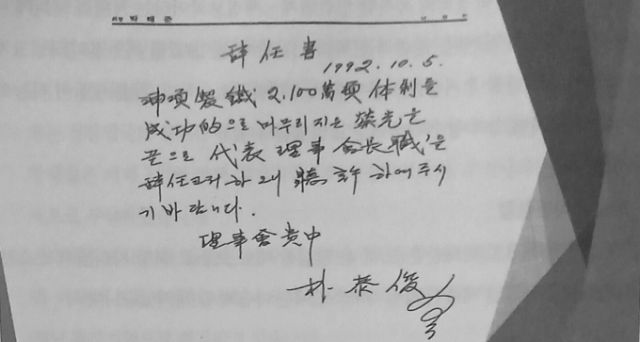 박태준
辞任書
1992. 10. 5.
浦项製鐵 2,100萬噸 体制를
成功的으로 마무리지은 榮光을
끝으로 代表理事 会長職을
辞任코저 하오니 聽許하여 주시
기 바랍니다.
理事會 貴中
朴泰俊